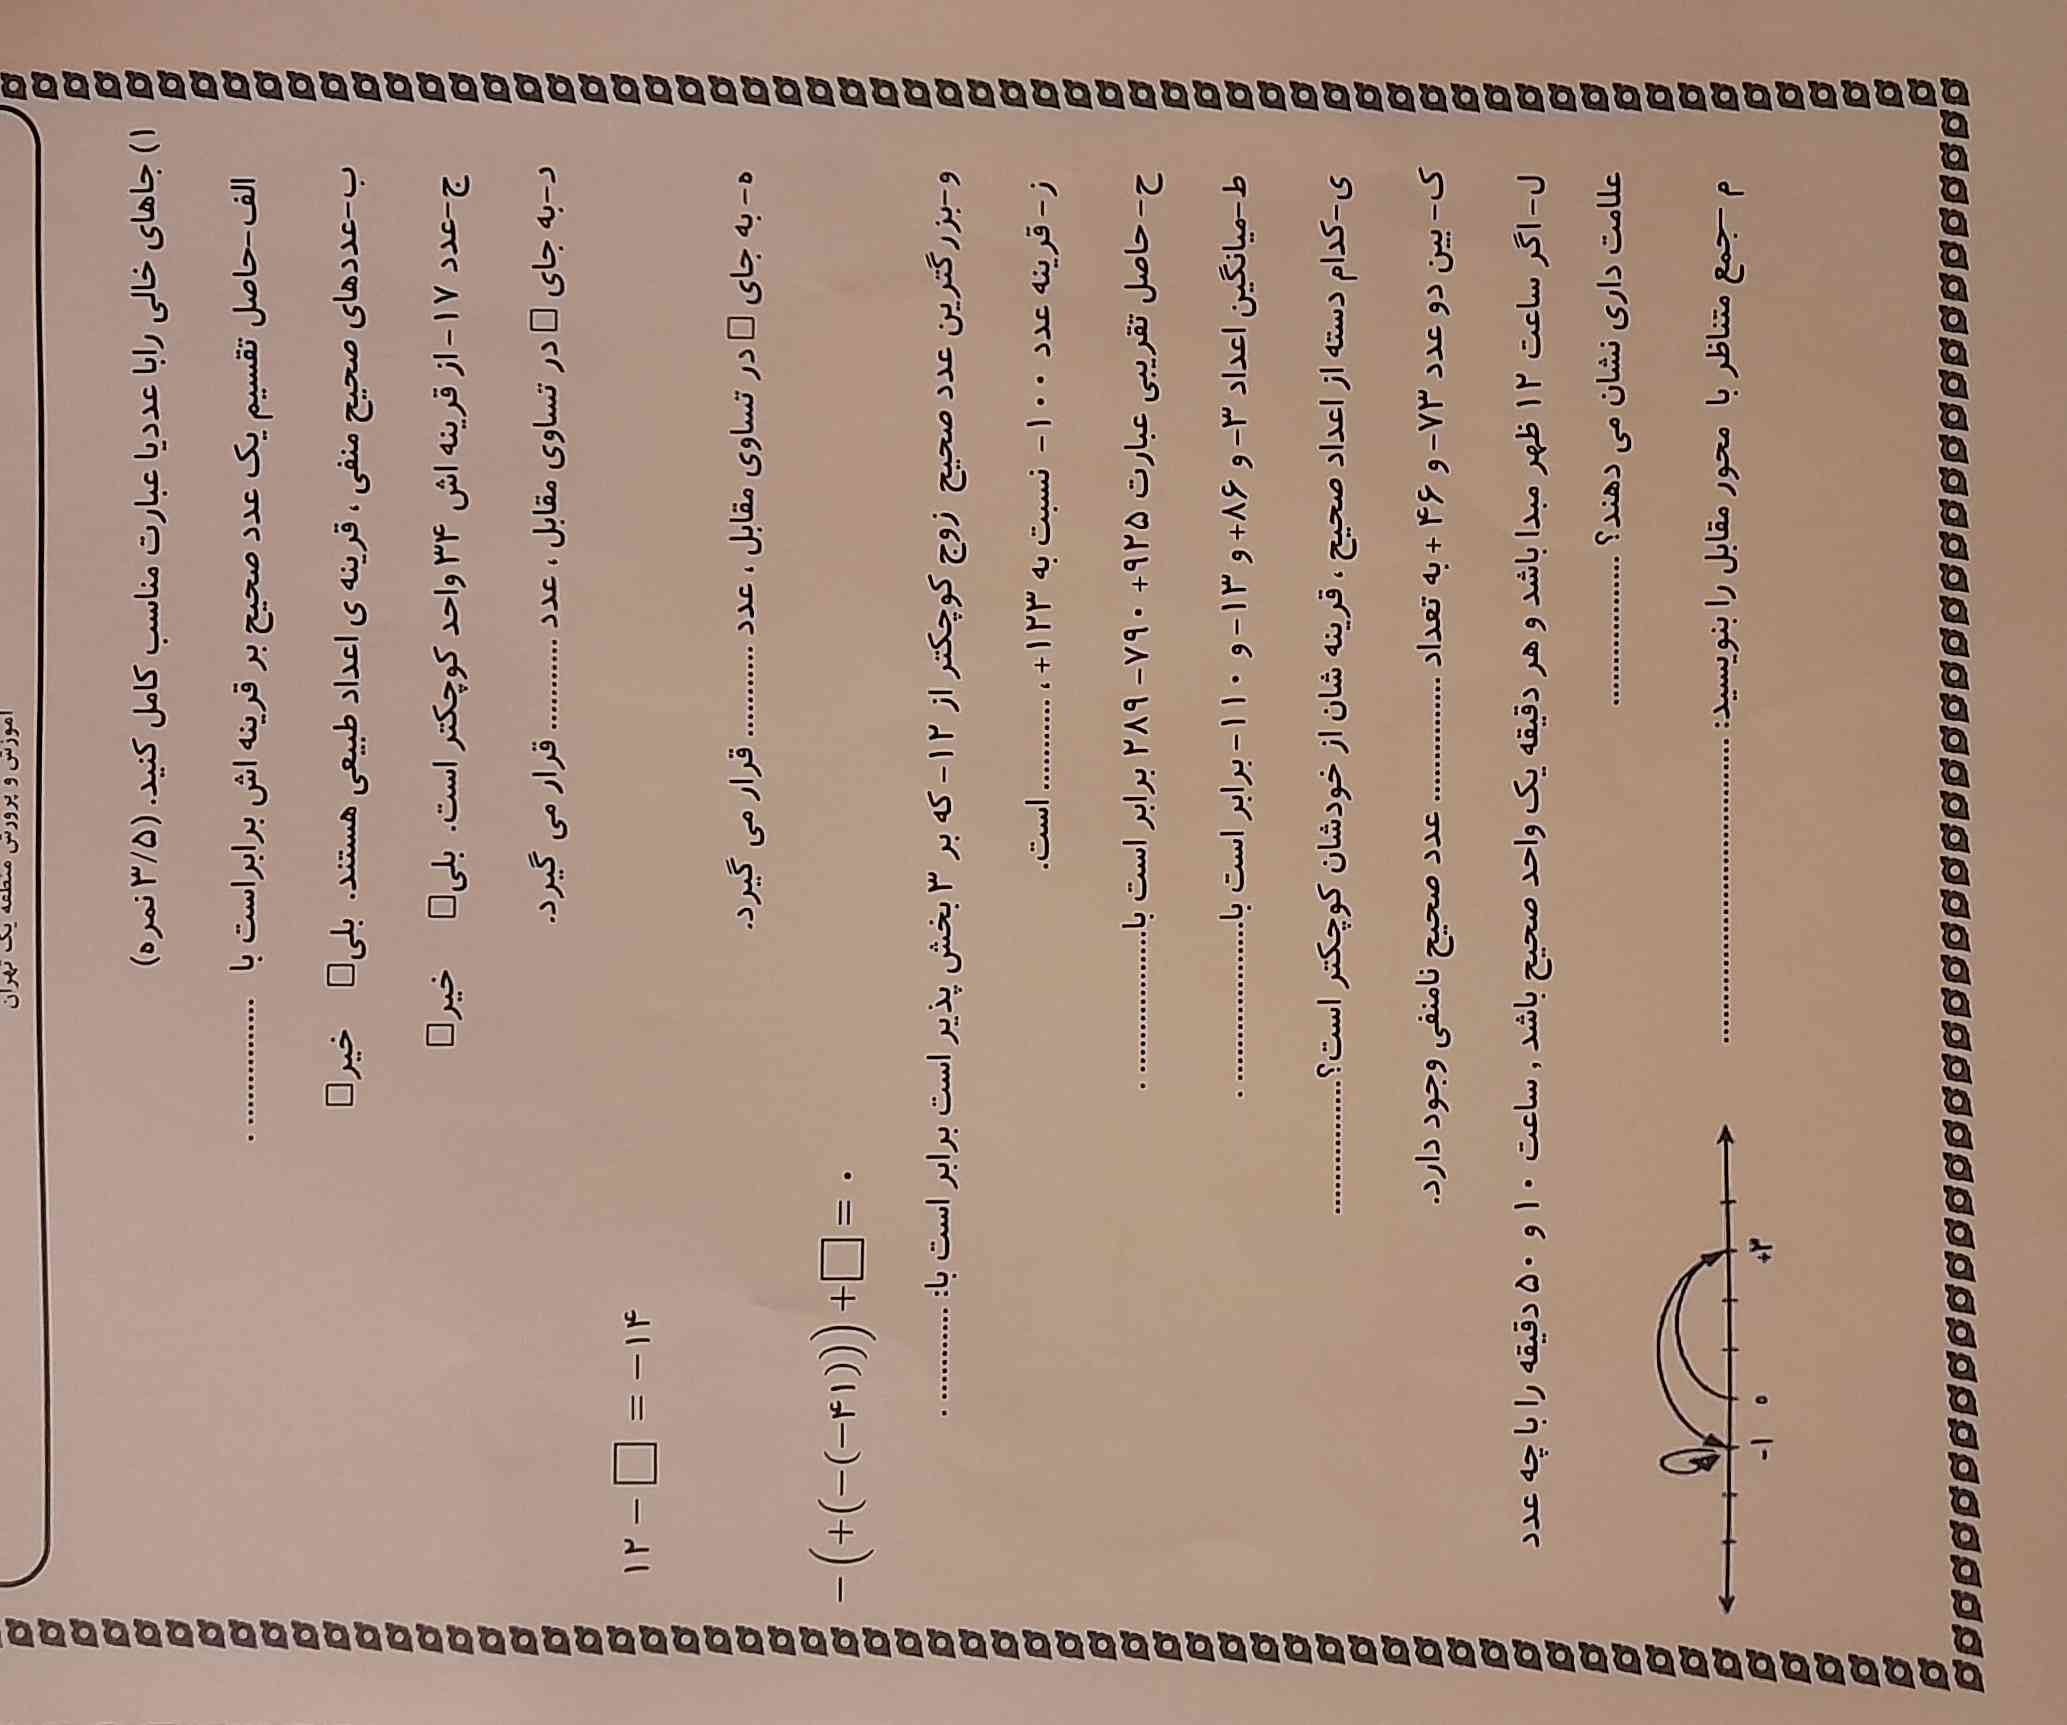 آموزش و پرورش منطقه یک تهران
۱) جاهای خالی رابا عددیا عبارت مناسب کامل کنید. (۳/۵ نمره)
الف-حاصل تقسیم یک عدد صحیح بر قرینه اش برابراست با ................ .
ب-عددهای صحیح منفی ، قرینه ی اعداد طبیعی هستند. بلی□ خیر□
ج-عدد ۱۷- از قرینه اش ۳۴ واحد کوچکتر است. بلی□ خیر□
د-به جای □ در تساوی مقابل ، عدد ........... قرار می گیرد.
۱۲ − □ = −۱۴
ه- به جای □ در تساوی مقابل ، عدد ........... قرار می گیرد.
−(+(−(−۴۱))) + □ = ۰
و-بزرگترین عدد صحیح زوج کوچکتر از ۱۲- که بر ۳ بخش پذیر است برابر است با: ............ .
ز- قرینه عدد ۱۰۰- نسبت به ۱۲۳+ ، ........... است.
ح-حاصل تقریبی عبارت ۹۲۵+ ۷۹۰- ۲۸۹ برابر است با.................. .
ط-میانگین اعداد ۳- و ۸۶+ و ۱۳- و ۱۱۰- برابر است با.................. .
ی-کدام دسته از اعداد صحیح ، قرینه شان از خودشان کوچکتر است؟................
ک- بین دو عدد ۷۳- و ۴۶+ به تعداد .............. عدد صحیح نامنفی وجود دارد.
ل- اگر ساعت ۱۲ ظهر مبدا باشد و هر دقیقه یک واحد صحیح باشد , ساعت ۱۰ و ۵۰ دقیقه را با چه عدد
علامت داری نشان می دهند؟ ................
م-جمع متناظر با محور مقابل را بنویسید: ....................................
-۱ ۰ +۳